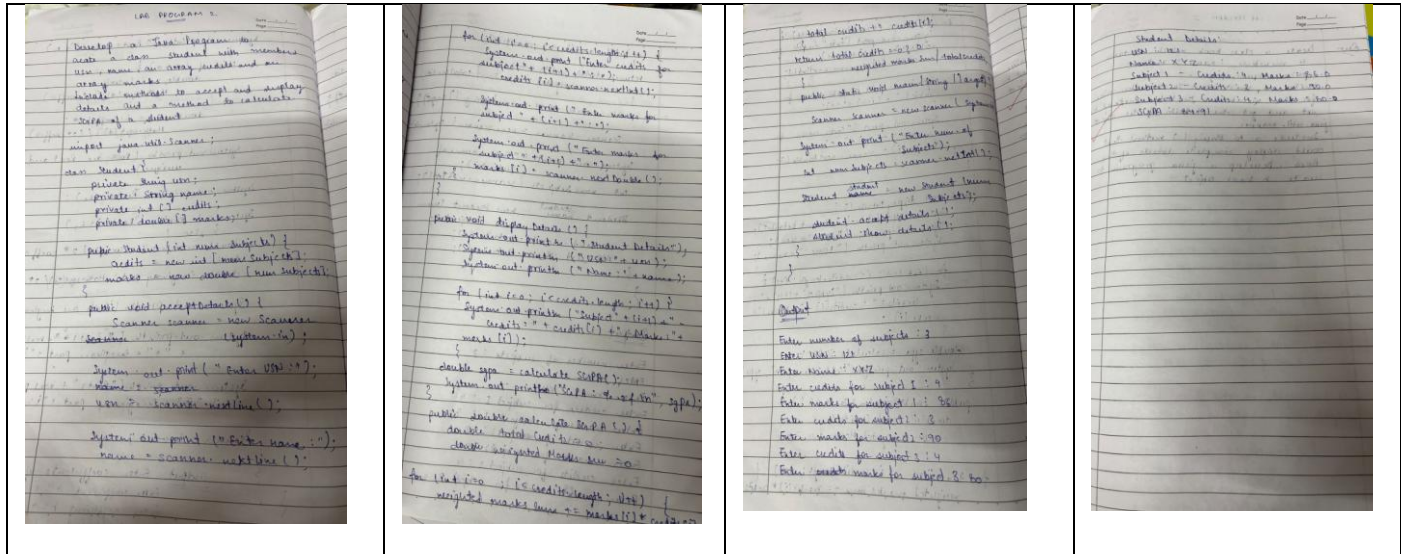 LAB PROGRAM 2.
Date
Page
Develop a Java Program to
create a class Student with members
usn, name, an array credits and an
array marks
include methods to accept and display
details and a method to calculate
SGPA of a student
import java.util.Scanner;
class Student {
private String usn;
private String name;
private int [] credits;
private double [] marks;
public Student (int num Subjects) {
credits = new int [num Subjects];
marks = new double [num Subjects];
}
public void acceptDetails() {
Scanner scanner = new Scanner
(System.in);
System.out.print (" Enter USN : ");
name = scanner
usn = scanner.nextLine();
System.out.print ("Enter name :");
name = scanner.nextLine();
Date
Page
for (int i=0; i<credits.length; i++) {
System.out.print ("Enter credits for
subject " + (i+1) + " : ");
credits [i] = scanner.nextInt();
System.out.print ("Enter marks for
subject " + (i+1) + " : ");
System.out.print ("Enter marks for
subject " + (i+1) + " : ");
marks [i] = scanner.nextDouble();
}
}
public void displayDetails () {
System.out.println (" Student Details");
System.out.println ("USN:" + usn);
System.out.println ("Name :" + name);
for (int i=0; i<credits.length; i++) {
System.out.println ("Subject" + (i+1) + "
credits=" + credits[i] + " Marks:" +
marks [i]);
}
double sgpa = calculate SGPA();
System.out.printf ("SGPA : sgpa);
}
public double calculate SGPA () {
double total Credits = 0
double weighted Marks Sum = 0
for (int i=0 ; i< credits.length; i++) {
weighted marks sum += marks[i] *
Date
Page
total credits += credits[i];
}
return total Credits
weighted marks sum / total credits
public static void main (String [] args) {
Scanner scanner = new Scanner (System
System.out.print ("Enter num of
Subjects");
int num Subjects = scanner.nextInt();
student
Student name = new Student (num
Subjects);
student accept details ();
student show details ();
}
}
Output
Enter number of subjects : 3
Enter USN : 123
Enter Name : XYZ
Enter credits for subject 1 : 4
Enter marks for subject 1 : 95
Enter credits for subject : 3
Enter marks for subject : 90
Enter credits for subject 3 : 4
Enter marks for subject 3 : 80
Date
Page
Student Details
USN : 123
Name : XYZ
Subject 1 - Credits : 4, Marks : 95.0
Subject 2 - Credits : 3, Marks : 90.0
Subject 3 - Credits : 4, Marks : 80.0
SGPA